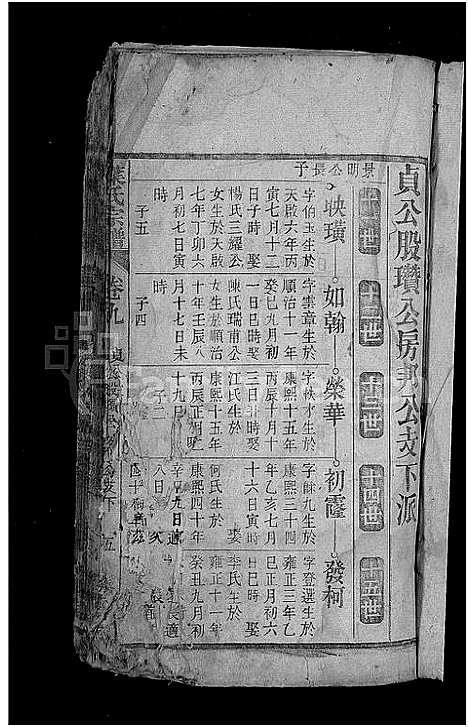 貞公股瓚公房邦公支下派
十二世
十三世
十四世
十五世
景明公長子
映璜
如翰
榮華
初霞
發柯
字伯玉生於
天啟六年丙
寅七月十二
日子時 娶
楊氏三耀公
女生於天啟
七年丁卯六
月初七日寅
時
子五
字雲章生於
順治十一年
癸巳九月初
一日巳時娶
陳氏瑞甫公
女生於順治
十年壬辰八
月十七日未
時
子四
康熙十五年
丙辰十月十
三日 時娶
江氏生於
康熙十五年
丙辰正月
十九日
子二
字 九生於
康熙三十四
年乙亥七月
十六日寅時
娶
何氏生於
康熙四十年
八日
字登選生於
雍正三年乙
巳正月初六
日巳時 娶
李氏生於
雍正十一年
癸丑九月初
氏宗譜
卷九
五